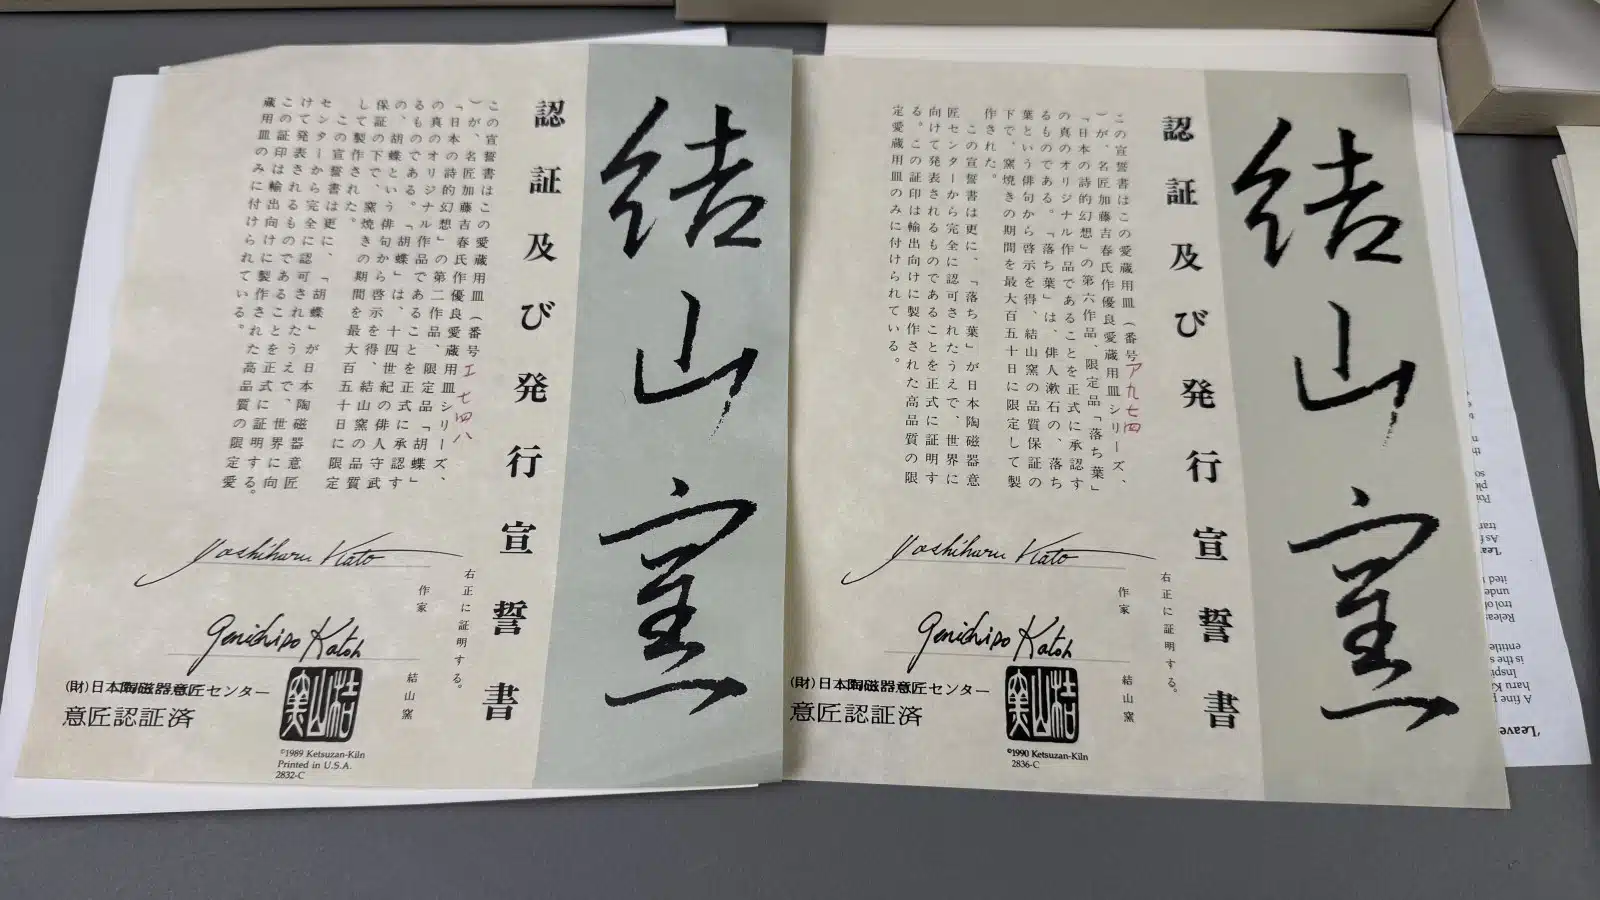 結山窯
認証及び発行宣誓書
この宣誓書はこの愛蔵用皿（番号エ七四八
）が、名匠加藤吉春氏作優良愛蔵用皿シリーズ、
「日本の詩的幻想」の第二作品、限定品「胡蝶」
の真のオリジナル作品であることを正式に承認す
るものである。「胡蝶」は、十四世紀の俳人守武
の、胡蝶という俳句から啓示を得、結山窯の品質
保証の下で、窯焼きの期間を最大百五十日に限定
して製作された。
この宣誓書は更に、「胡蝶」が日本陶磁器意匠
センターから完全に認可されたうえで、世界に向
けて発表されるものであることを正式に証明する。
この証印は輸出向けに製作された高品質の限定愛
蔵用皿のみに付けられている。
右正に証明する。
Yoshiharu Kato
作家
Genichiro Katoh
結山窯
(財)日本陶磁器意匠センター
意匠認証済
結山窯
©1989 Ketsuzan-Kiln
Printed in U.S.A.
2832-C
結山窯
認証及び発行宣誓書
この宣誓書はこの愛蔵用皿（番号ア九七四
）が、名匠加藤吉春氏作優良愛蔵用皿シリーズ、
「日本の詩的幻想」の第六作品、限定品「落ち葉」
の真のオリジナル作品であることを正式に承認す
るものである。「落ち葉」は、俳人漱石の、落ち
葉という俳句から啓示を得、結山窯の品質保証の
下で、窯焼きの期間を最大百五十日に限定して製
作された。
この宣誓書は更に、「落ち葉」が日本陶磁器意
匠センターから完全に認可されたうえで、世界に
向けて発表されるものであることを正式に証明す
る。この証印は輸出向けに製作された高品質の限
定愛蔵用皿のみに付けられている。
右正に証明する。
Yoshiharu Kato
作家
Genichiro Katoh
結山窯
(財)日本陶磁器意匠センター
意匠認証済
結山窯
©1990 Ketsuzan-Kiln
2836-C
'Leave
A fine p
haru K
Inspi
is the s
entitle
Releas
trol of
unde
ited